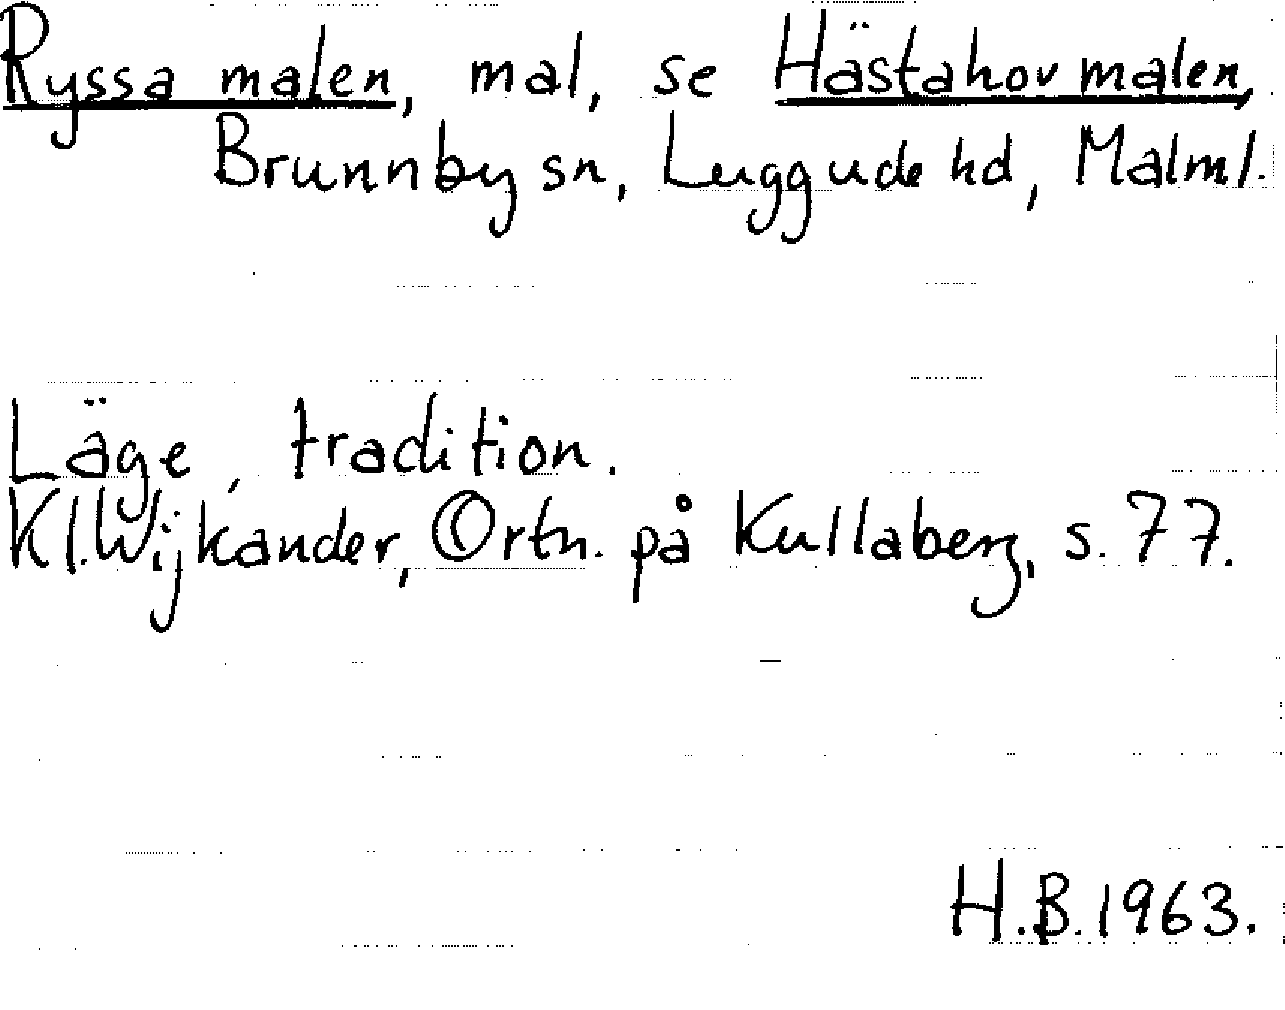 Ryssa malen, mal, se Hästahov malen,
Brunnby sn, Luggude hd, Malml.
Läge, tradition.
Kl. Wijkander, Ortn. på Kullaberg, s. 77.
H.B. 1963.